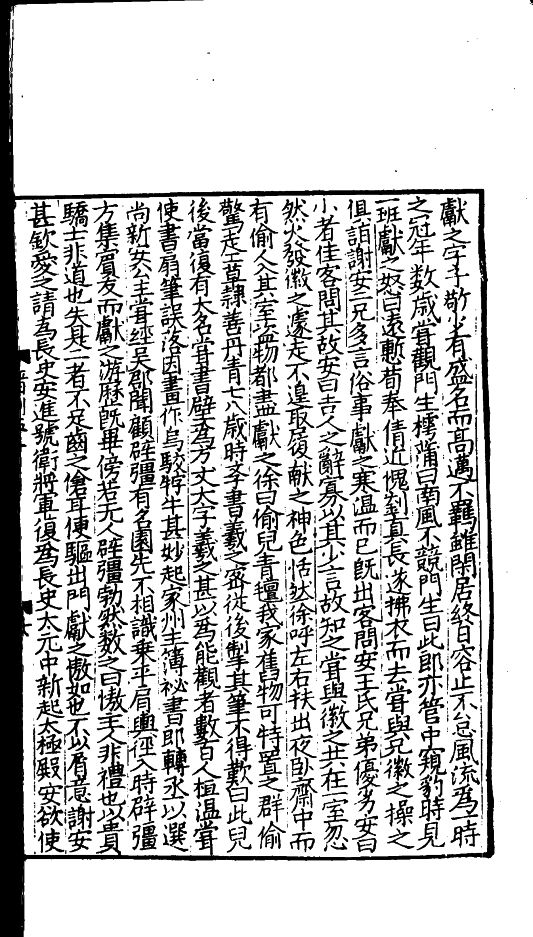 獻之字子敬少有盛名而高邁不羈雖閑居終日容止不怠風流為一時
之冠年數歲甞觀門生樗蒲曰南風不競門生曰此郎亦管中窺豹時見
一班獻之怒曰遠慙荀奉倩近愧劉真長遂拂衣而去甞與兄徽之操之
俱詣謝安二兄多言俗事獻之寒温而已旣出客問安王氏兄弟優劣安曰
小者佳客問其故安曰吉人之辭寡以其少言故知之甞與徽之共在一室忽
然火發徽之遽走不遑取屐獻之神色恬然徐呼左右扶出夜卧齋中而
有偷人入其室盗物都盡獻之徐曰偷兒青氊我家舊物可特置之羣偷
驚走工草隸善丹青七八歲時學書羲之密從後掣其筆不得歎曰此兒
後當復有大名甞書壁為方丈大字羲之甚以為能觀者數百人桓温甞
使書扇筆誤落因畫作烏駮牸牛甚妙起家州主簿祕書郎轉丞以選
尚新安公主甞經吳郡聞顧辟彊有名園先不相識乗平肩輿徑入時辟彊
方集賔友而獻之游歷旣畢傍若无人辟彊勃然數之曰傲主人非禮也以貴
驕士非道也失是二者不足齒之傖耳便驅出門獻之傲如也不以屑意謝安
甚欽愛之請為長史安進號衛將軍復為長史太元中新起太極殿安欲使